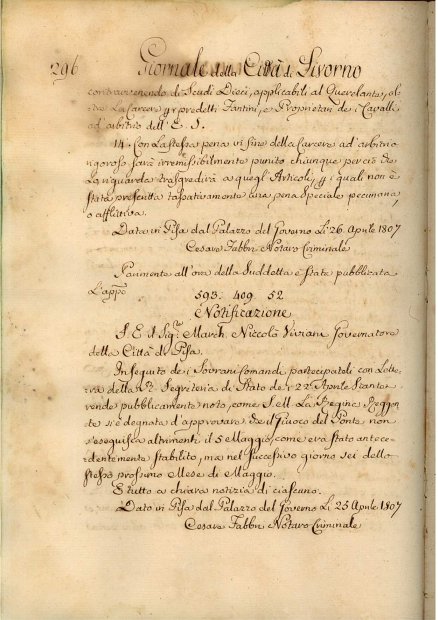 296 Giornale della Città di Livorno
contravvenendo di Scudi Dieci, applicabili al Querelante, ol-
tre La Carcere p predetti Fantini, e Proprietari de i Cavalli
ad arbitrio dell' E. S.
14. Con La stessa pena vi sine della Carcere ad arbitrio
rigoroso sarà irremissibilmente punito chiunque per ciò che
La riguarda trasgredirà a quegl' Articoli, p i quali non è
stata prescritta tassativamente una pena speciale pecuniaria
o afflittiva.
Data in Pisa dal Palazzo del Governo Li 26 Aprile 1807
Cesare Fabbri Notaro Criminale
Parimente all' ora della Suddetta è stata pubblicata
L'app.º 593. 409 52
Notificazione
S. E. il Sig.re March. Niccolò Viviani Governatore
della Città di Pisa.
In seguito de i Sovrani Comandi partecipatoli con Lette-
ra della R. Segreteria di Stato de i 22 Aprile Stante
rende pubblicamente noto, come S. M. La Regina Reggen-
te si è degnata d'approvare che il Giuoco del Ponte non
s'eseguisca altrimenti il 5 Maggio, come era stato antece-
dentemente stabilito, ma nel successivo giorno sei dello
stesso prossimo Mese di Maggio.
E tutto a chiara notizia di ciascuno.
Dato in Pisa dal Palazzo del Governo Li 25 Aprile 1807
Cesare Fabbri Notaro Criminale